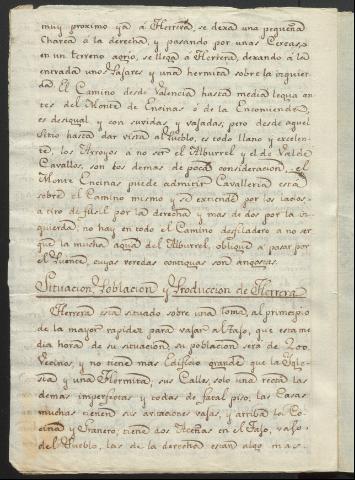 muy proximo ya á Herrera, se dexa una pequeña
Charca á la derecha, y pasando por unas Cercas
en un terreno agrio, se llega á Herrera, dexando á la
entrada unos Pajares y una hermita sobre la izquier-
da. El Camino desde Valencia hasta media legua an-
tes del Monte de Encinas ó de la Encomienda
es desigual y con suvidas y vajadas, pero desde aquel
sitio hasta dar vista al Pueblo, es todo llano y excelen-
te, los Arroyos á no ser el Alburrel y el de Val de
Cavallos, son los demas de poca consideracion, el
Monte Encinas puede admitir Cavalleria está
sobre el Camino mismo y se extiende por los lados
a tiro de fusil por la derecha y mas de dos por la iz-
quierda: no hay en todo el Camino desfiladero a no ser
que la mucha agua del Alburrel, oblique á pasar por
el Puente, cuyas veredas contiguas son angostas.
Situacion, Poblacion y Produccion de Herrera
Herrera está situado sobre una loma, al principio
de la mayor rapidez para vajar al Tajo, que está me-
dia hora de su situacion, su poblacion será de 200
Vecinos, y no tiene mas Edificio grande que la Ygle-
sia y una Hermita, sus Calles solo una recta las
demas imperfectas y todas de fatal piso, las Casas
muchas tienen sus avitaciones vajas, y arriba la Co-
cina y Granero, tiene dos Aceñas en el Tajo, vajo
del Pueblo, las de la derecha estan algo mas-